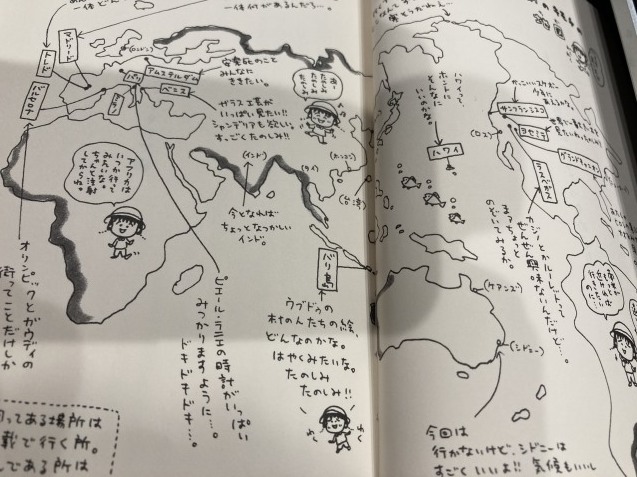 一体何があるんだろ…。
マドリード
トレド
バルセロナ
(ロンドン)
アムステルダム
パリ
ベニス
安楽死のこと
みんなに
ききたい。
ガラス工芸が
いっぱい見たい!!
シャンデリアも欲いし
すっごくたのしみ!!
アフリカは
いつか行って
みたいな。
ちゃんと注射
してからね。
(インド)
(タイ)
(台湾)
今となれば
ちょっとなつかしい
インド。
バリ島
ウブドゥの
村の人たちの絵、
どんなのかな。
はやくみたいな。
たのしみ
たのしみ!!
わく
わく
ピエール・ラニエの時計がいっぱい
みつかりますように…。
ドキドキドキ…。
オリンピックとガウディの
街ってことだけしか
ってある場所は
載で行く所。
してある所は
ハワイって
ホントに
そんなに
いいのかな。
ハワイ
サンフランシスコ
(ロス)
ヨセミテ
グランドキャニオン
ラスベガス
カジノとかルーレットって
ぜんぜん興味ないんだけど…。
まっちょっと
のぞいてみるか。
(ケアンズ)
(シドニー)
今回は
行かないけど、シドニーは
すごくいいよ!! 気候もいいし